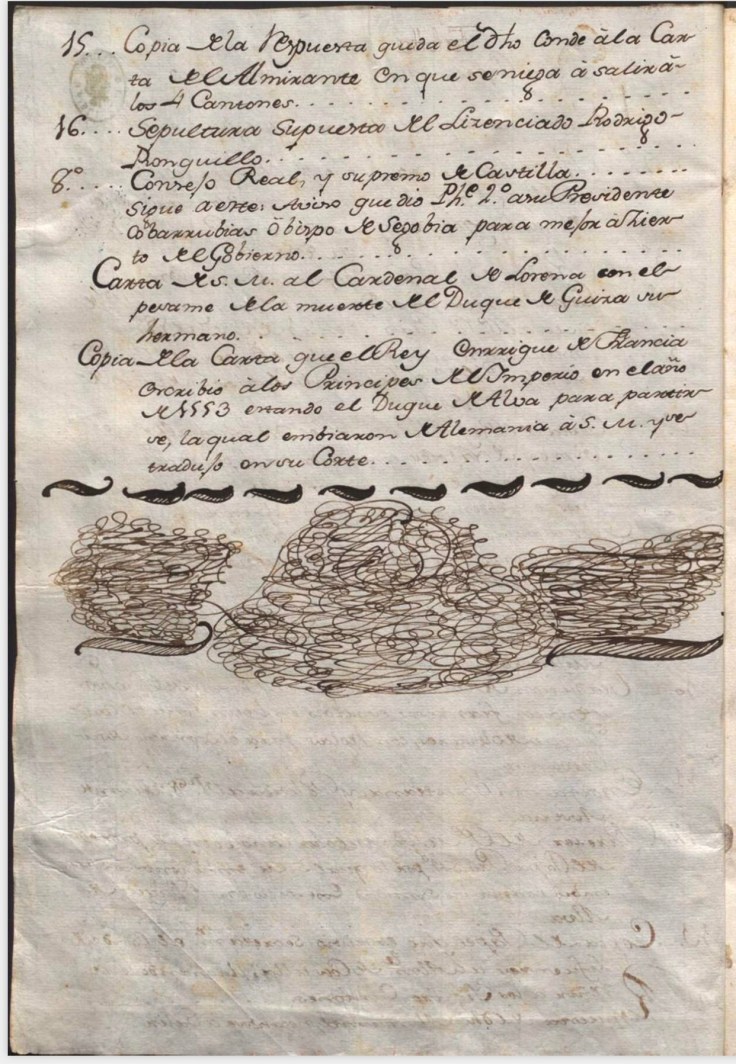 15... Copia de la Respuesta que da el dho Conde à la Car-
ta del Almirante en que se niega à salir à-
los 4 Cantones.
16.... Sepultura Supuesta del Lizenciado Rodrigo-
Ronquillo.
8.º..... Consejo Real, y supremo de Castilla.
Sigue a este: Aviso que dio Phe. 2.º a su Presidente
Cobarrubias Obispo de Segobia para mejor àzier-
to del Gobierno.
Carta de S. M. al Cardenal de Lorena con el-
pesame de la muerte del Duque de Guisa su-
hermano.
Copia de la Carta que el Rey Enrrique de Francia
escribio à los Principes del Imperio en el año
de 1553 estando el Duque de Alva para partir-
se, la qual embiaron de Alemania à S. M. y se
tradujo en su Corte.